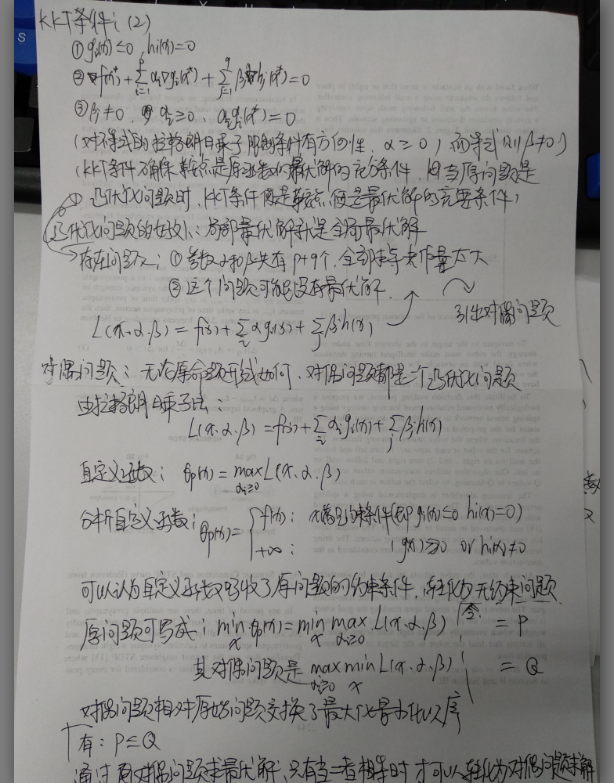 KKT条件: (2)
① gᵢ(x)≤0, hᵢ(x)=0
② ∇f(x*)+∑ᵢ₌₁ᵖ αᵢ∇gᵢ(x*)+∑ⱼ₌₁^q βⱼ∇hⱼ(x*)=0
③ βⱼ≠0, αᵢ≥0, αᵢgᵢ(x*)=0
(对不等式的拉格朗日乘子限制条件有方向性, α≥0, 而等式则β≠0)
(KKT条件确保 是原函数 最优解的 条件, 但当原问题是
凸优化问题时, KKT条件 便是最优解的充要条件)
凸优化问题的好处: 局部最优解就是全局最优解
存在问题: ① 参数α和β共有p+q个, 全部求导工作量太大
② 这个问题可能没有最优解.
L(x.α.β)=f(x)+∑ᵢ αᵢgᵢ(x)+∑ⱼ βⱼhⱼ(x)
引出对偶问题
对偶问题: 无论原命题形式如何, 对偶问题都是一个凸优化问题
由拉格朗日乘子法:
L(x.α.β)=f(x)+∑ᵢ αᵢgᵢ(x)+∑ⱼ βⱼhⱼ(x)
自定义函数: θp(x)=max αᵢ≥0 L(x.α.β)
分析自定义函数: θp(x)= { f(x): 满足约束条件(即 gᵢ(x)≤0 hᵢ(x)=0)
+∞: gᵢ(x)≥0 or hᵢ(x)≠0
可以认为自定义函数吸收了原问题的约束条件, 转化为无约束问题.
原问题可写成: min x θp(x)=min x max αᵢ≥0 L(x.α.β) 令 = P
其对偶问题是 max αᵢ≥0 min x L(x.α.β) = Q
对偶问题相对原始问题交换了最大化最小化次序
有: P≤Q
通过 对偶问题求最优解, 只有当二者相等时 才可以转化为对偶问题求解